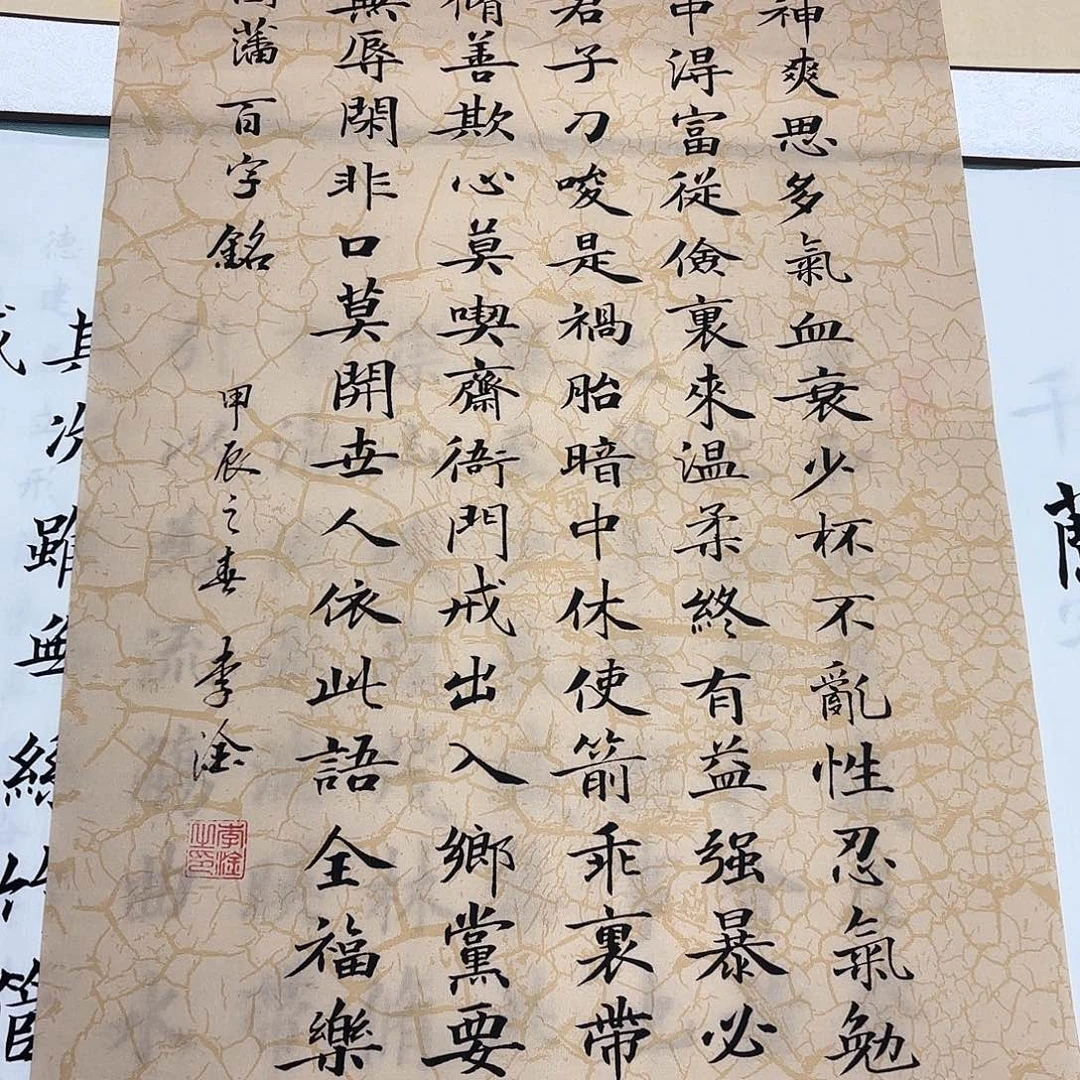 神爽思多氣血衰少杯不亂性忍氣勉
中淂富從儉裏來温柔終有益强暴必
君子刀唆是禍胎暗中休使箭乖裏帶
脩善欺心莫喫齋衙門戒出入鄉黨要
無辱閑非口莫開世人依此語全福樂
藩百字銘 甲辰之春 李淦
李淦之印
其次雖無絲竹管